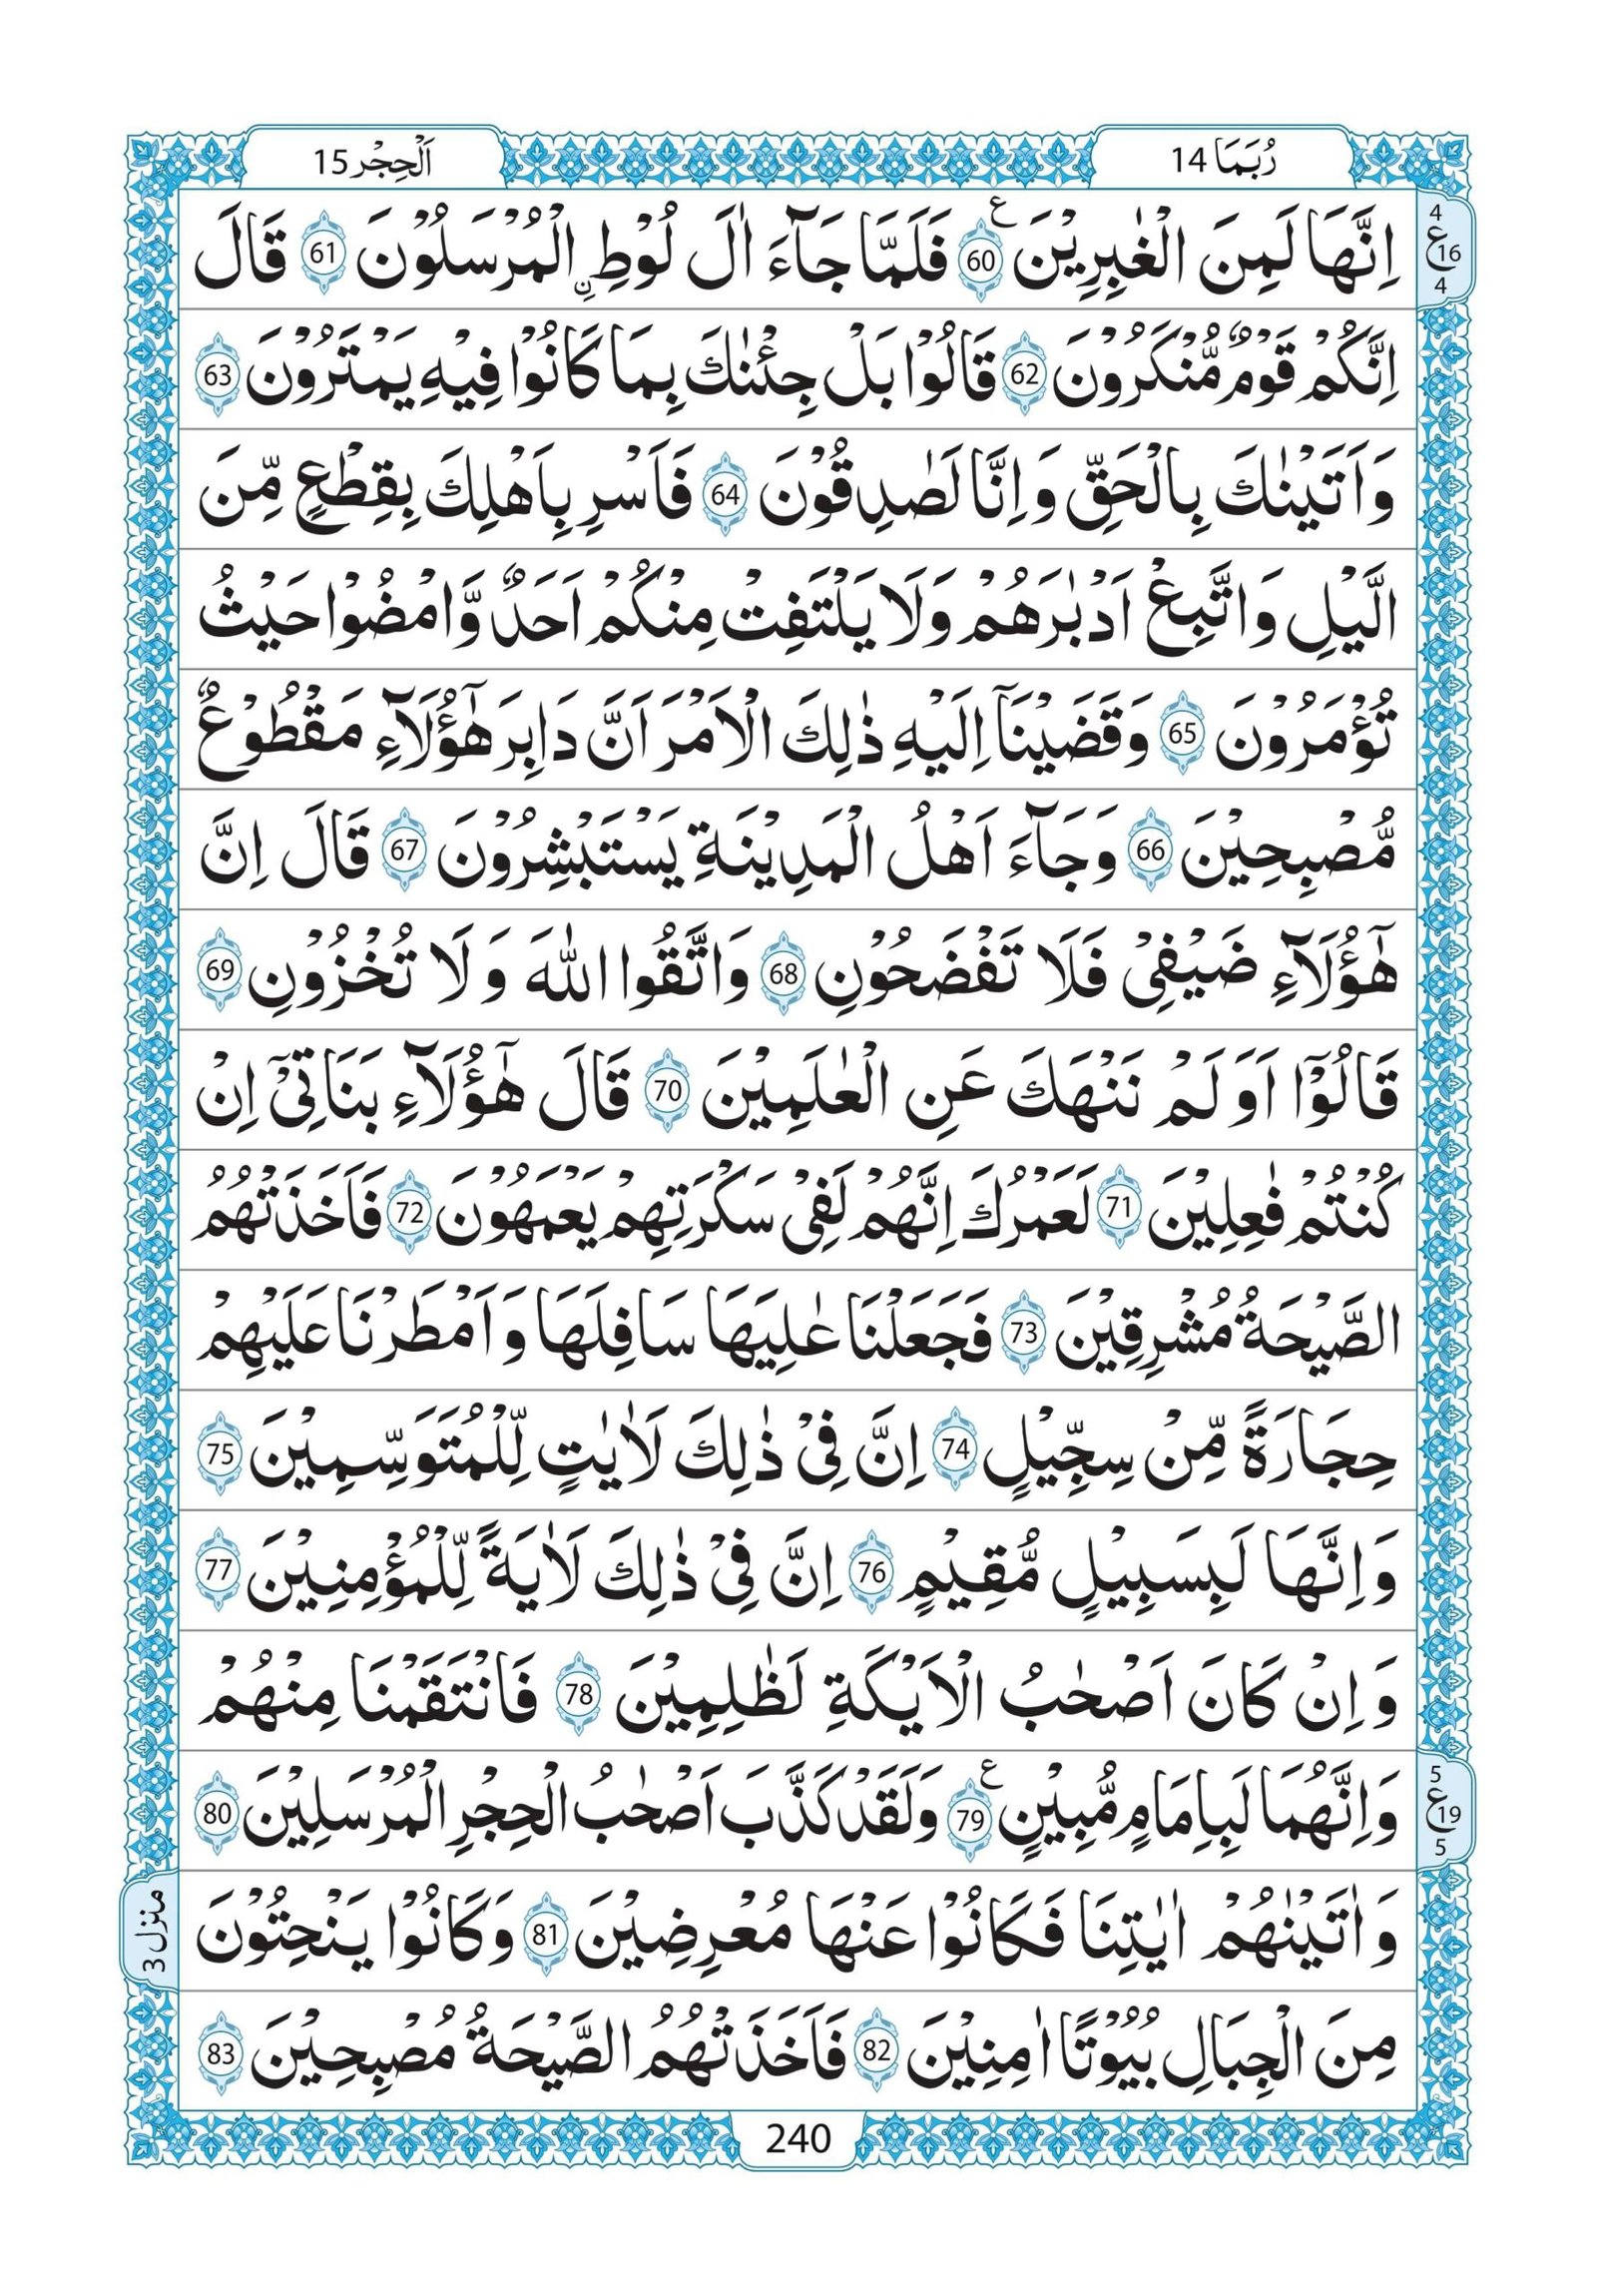 رُبَمَا 14
اَلْحِجْر 15
4
ع 16
4
اِنَّهَا لَمِنَ الْغٰبِرِیْنَ ع 60 فَلَمَّا جَآءَ اٰلَ لُوْطِ ِۨالْمُرْسَلُوْنَ 61 قَالَ
اِنَّكُمْ قَوْمٌ مُّنْكَرُوْنَ 62 قَالُوْا بَلْ جِئْنٰكَ بِمَا كَانُوْا فِیْهِ یَمْتَرُوْنَ 63
وَ اَتَیْنٰكَ بِالْحَقِّ وَ اِنَّا لَصٰدِقُوْنَ 64 فَاَسْرِ بِاَهْلِكَ بِقِطْعٍ مِّنَ
الَّیْلِ وَ اتَّبِعْ اَدْبٰرَهُمْ وَ لَا یَلْتَفِتْ مِنْكُمْ اَحَدٌ وَّ امْضُوْا حَیْثُ
تُؤْمَرُوْنَ 65 وَ قَضَیْنَاۤ اِلَیْهِ ذٰلِكَ الْاَمْرَ اَنَّ دَابِرَ هٰۤؤُلَآءِ مَقْطُوْعٌ
مُّصْبِحِیْنَ 66 وَ جَآءَ اَهْلُ الْمَدِیْنَةِ یَسْتَبْشِرُوْنَ 67 قَالَ اِنَّ
هٰۤؤُلَآءِ ضَیْفِیْ فَلَا تَفْضَحُوْنِ 68 وَ اتَّقُوا اللّٰهَ وَ لَا تُخْزُوْنِ 69
قَالُوْۤا اَوَ لَمْ نَنْهَكَ عَنِ الْعٰلَمِیْنَ 70 قَالَ هٰۤؤُلَآءِ بَنَاتِیْۤ اِنْ
كُنْتُمْ فٰعِلِیْنَ 71 لَعَمْرُكَ اِنَّهُمْ لَفِیْ سَكْرَتِهِمْ یَعْمَهُوْنَ 72 فَاَخَذَتْهُمُ
الصَّیْحَةُ مُشْرِقِیْنَ 73 فَجَعَلْنَا عٰلِیَهَا سَافِلَهَا وَ اَمْطَرْنَا عَلَیْهِمْ
حِجَارَةً مِّنْ سِجِّیْلٍ 74 اِنَّ فِیْ ذٰلِكَ لَاٰیٰتٍ لِّلْمُتَوَسِّمِیْنَ 75
وَ اِنَّهَا لَبِسَبِیْلٍ مُّقِیْمٍ 76 اِنَّ فِیْ ذٰلِكَ لَاٰیَةً لِّلْمُؤْمِنِیْنَ 77
وَ اِنْ كَانَ اَصْحٰبُ الْاَیْكَةِ لَظٰلِمِیْنَ 78 فَانْتَقَمْنَا مِنْهُمْ
وَ اِنَّهُمَا لَبِاِمَامٍ مُّبِیْنٍ ع 79 وَ لَقَدْ كَذَّبَ اَصْحٰبُ الْحِجْرِ الْمُرْسَلِیْنَ 80
5
ع 19
5
وَ اٰتَیْنٰهُمْ اٰیٰتِنَا فَكَانُوْا عَنْهَا مُعْرِضِیْنَ 81 وَ كَانُوْا یَنْحِتُوْنَ
منزل 3
مِنَ الْجِبَالِ بُیُوْتًا اٰمِنِیْنَ 82 فَاَخَذَتْهُمُ الصَّیْحَةُ مُصْبِحِیْنَ 83
240